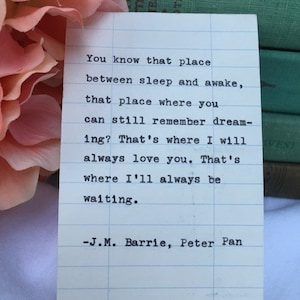 You know that place
between sleep and awake,
that place where you
can still remember dream-
ing? That's where I will
always love you. That's
where I'll always be
waiting.
-J.M. Barrie, Peter Pan